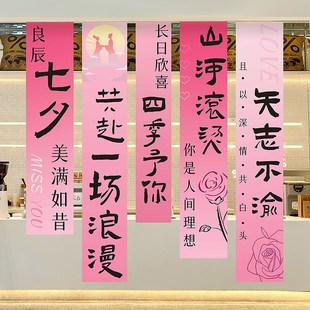 良辰
七夕
美满如昔
MISS YOU
共赴一场浪漫
长日欣喜
四季予你
山河滚烫
你是人间理想
LOVE
且·以·深·情·共·白·头
矢志不渝